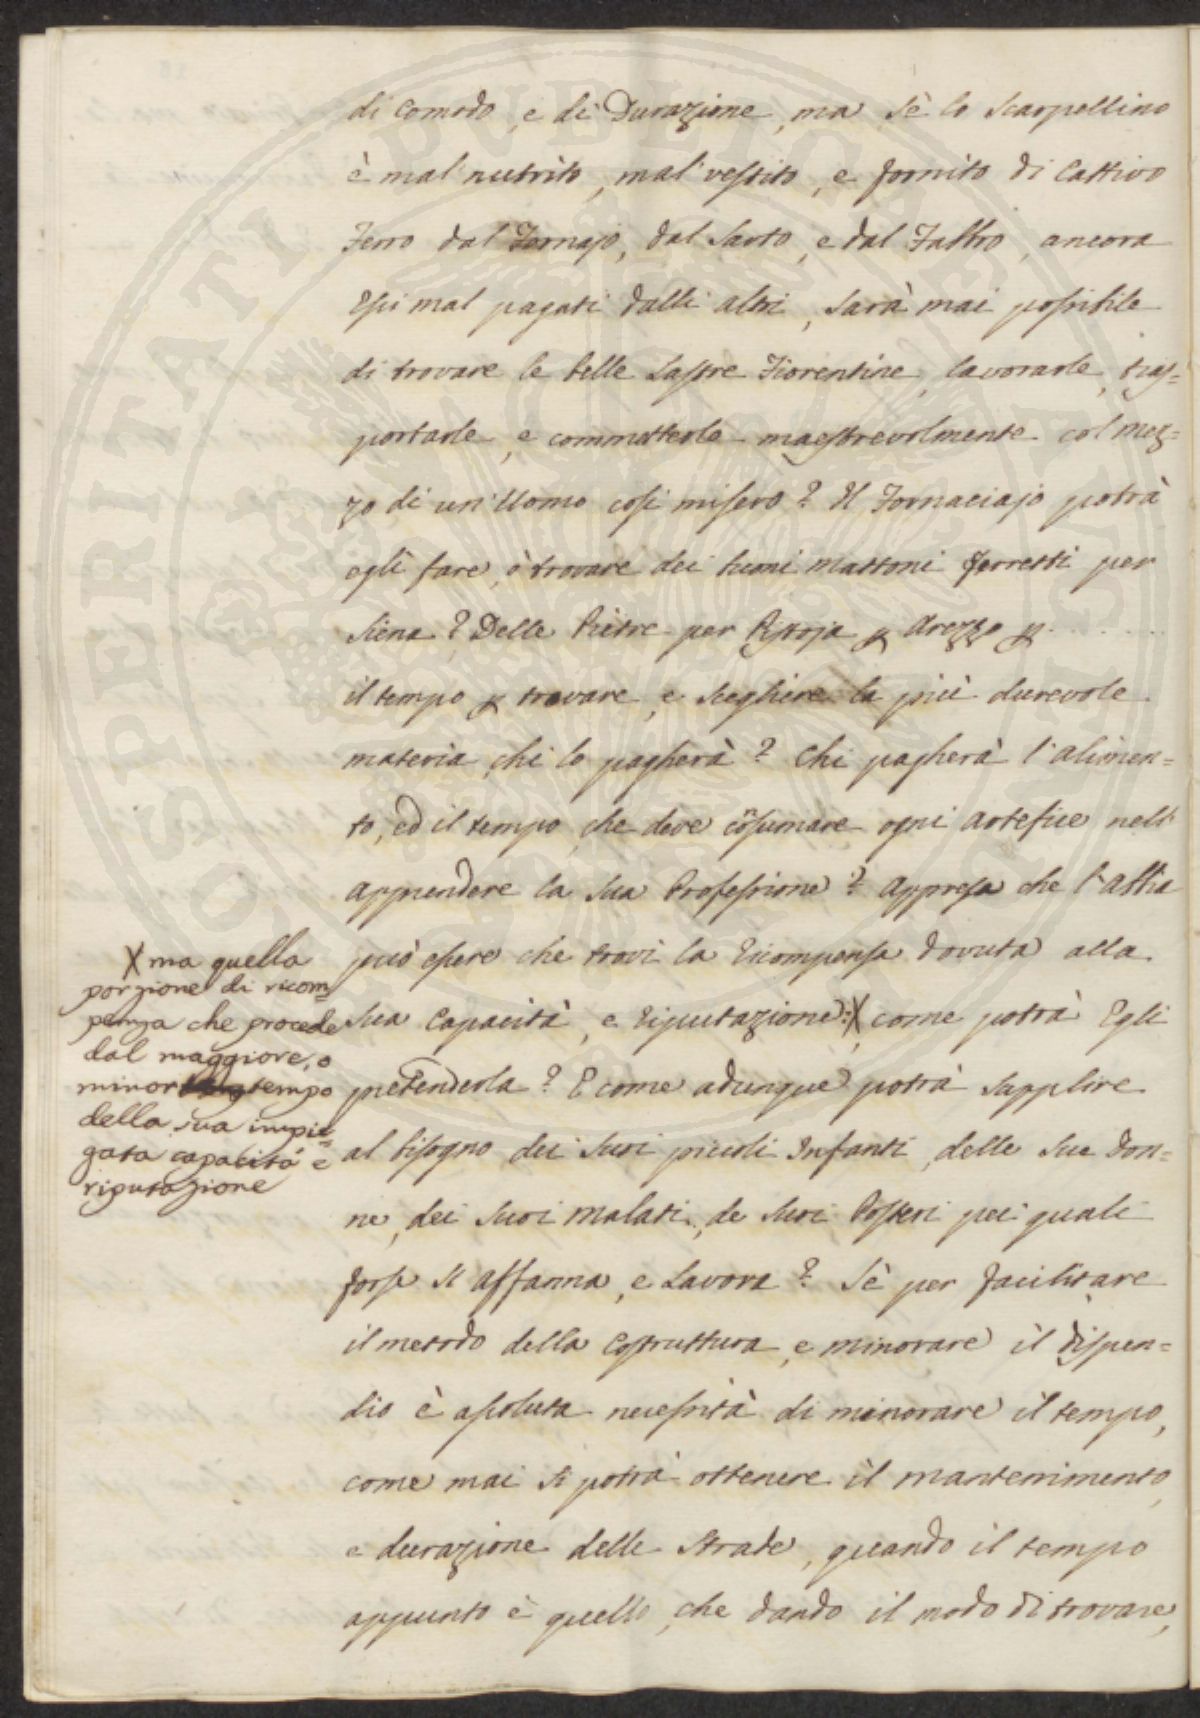 di Comodo, e di Durazione, ma sè lo scarpellino
è mal nutrito, mal vestito, e fornito di Cattivo
Ferro dal Fornajo, dal Sarto, e dal Fabbro, ancora
Essi mal pagati dalli altri, sarà mai possibile
di trovare le belle Lastre Fiorentine, lavorarle, tras=
portarle, e commetterle maestrevolmente col mez=
zo di un'Uomo così misero? Il Fornaciajo potrà
egli fare, ò trovare dei buoni mattoni ferretti per
Siena? Delle Pietre per Pistoja p Arezzo p ..........
il tempo p trovare, e scegliere la più durevole
materia chi lo pagherà? Chi pagherà l'alimen=
to, ed il tempo che deve cõsumare ogni Artefice nell'
apprendere la sua Professione? Appresa che l'abbia
può essere che trovi la Ricompensa dovuta alla
sua Capacità, e Riputazione: X come potrà Egli
pretenderla? E come adunque potrà supplire
al bisogno dei suoi piccoli Infanti, delle sue Don=
ne, dei suoi Malati, de suoi Posteri pei quali
forse si affanna, e Lavora? Sè per facilitare
il metodo della Costruttura, e minorare il dispen=
dio è assoluta necessità di minorare il tempo,
come mai si potrà ottenere il mantenimento,
e durazione delle Strade, quando il tempo
appunto è quello, che dando il modo di trovare,
X ma quella
porzione di ricom=
penza che procede
dal maggiore, o
minor tempo
della sua impie=
gata capacità e
riputazione
SPERITATI PUBLICAE